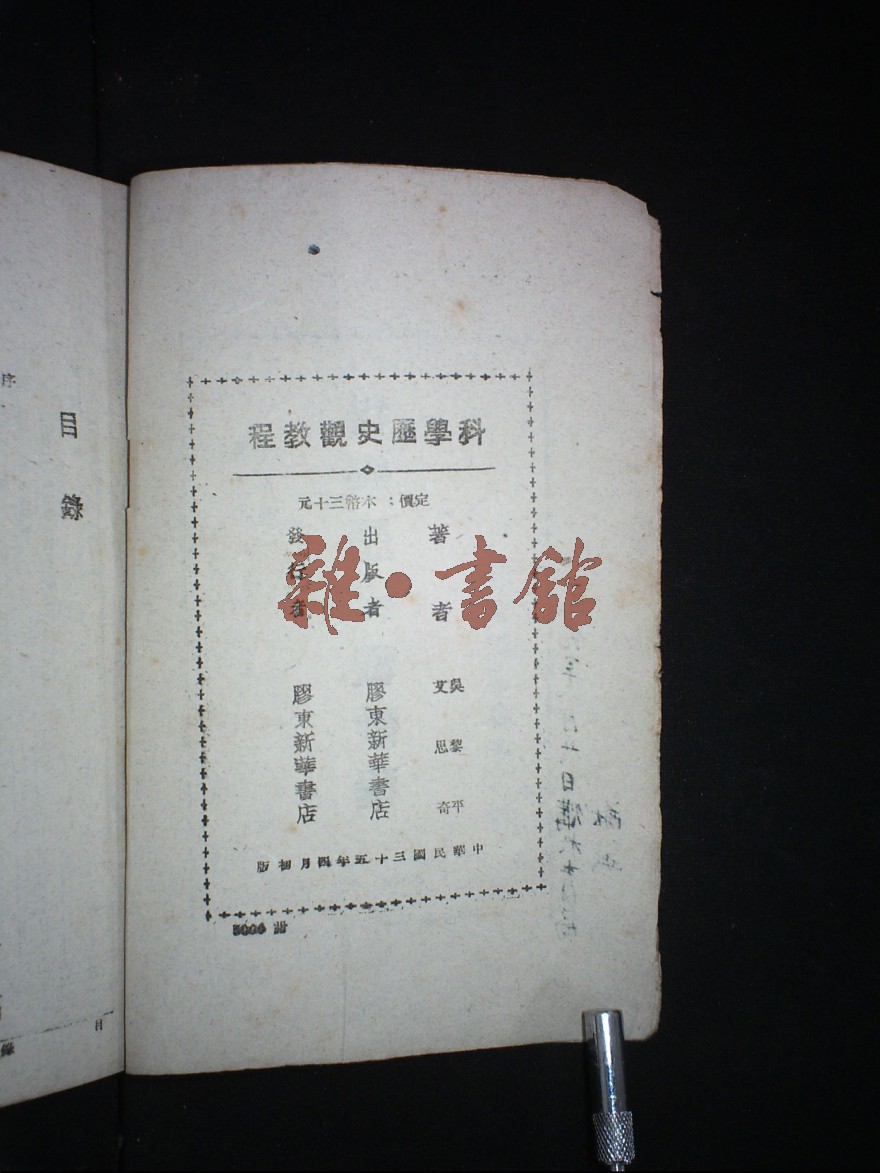 科學歷史觀教程
定價：本幣三十元
著者 吳黎平 艾思奇
出版者 膠東新華書店
發行者 膠東新華書店
中華民國三十五年四月初版
5000 冊
雜·書館
目錄
序
目
錄